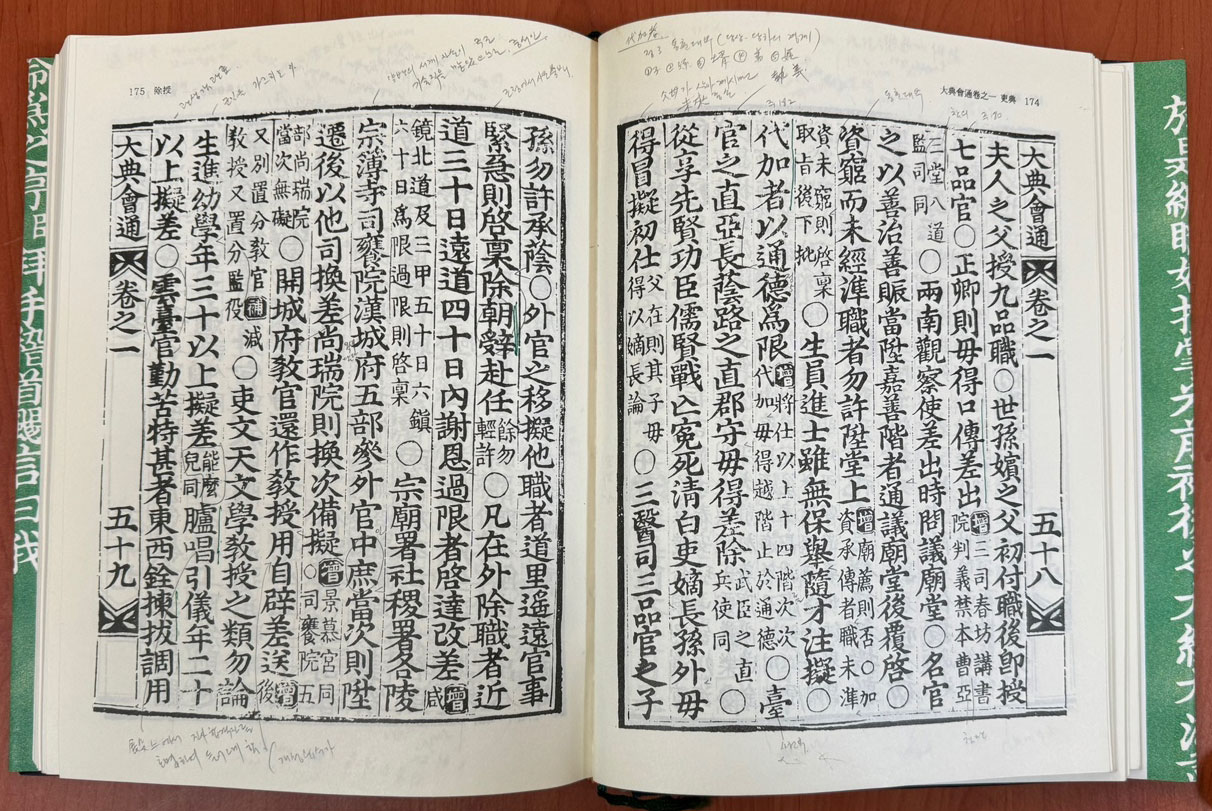 大典會通卷之一 吏典 174
代加者
大典會通 卷之一 五十八
夫人之父授九品職○世孫嬪之父初付職後卽授
七品官○正卿則毋得口傳差出增三司春坊講書院判義禁本曹亞
三堂八道監司同○兩南觀察使差出時問議廟堂○名官
之以善治善賑當陞嘉善階者通議廟堂後覆啓○
資窮而未經準職者勿許陞堂上增廟薦則否○加資承傳者職未準
資未窮則啓稟取旨後下批○生員進士雖無保擧隨才注擬○
代加者以通德爲限增將仕以上十四階次次代加毋得越階止於通德○臺
官之直亞長蔭路之直郡守毋得差除武臣之直兵使同○
從享先賢功臣儒賢戰亡寃死淸白吏嫡長孫外毋
得冒擬初仕父在則其子毋得以嫡長論○三醫司三品官之子
175 除授
孫勿許承蔭○外官之移擬他職者道里遙遠官事
緊急則啓稟除朝辭赴任餘勿輕許○凡在外除職者近
道三十日遠道四十日內謝恩過限者啓達改差增咸
鏡北道及三甲五十日六鎭六十日爲限過限則啓稟○宗廟署社稷署各陵
宗簿寺司饔院漢城府五部參外官中庶當次則陞
遷後以他司換差尙瑞院則換次備擬增○景慕宮同司饔院五
部尙瑞院當次無礙○開城府敎官還作敎授用自辟差送增後
又別置分敎官敎授又置分監役補減○吏文天文學敎授之類勿論
生進幼學年三十以上擬差能麽兒同臚唱引儀年二十
以上擬差○雲臺官勤苦特甚者東西銓揀拔調用
大典會通 卷之一 五十九